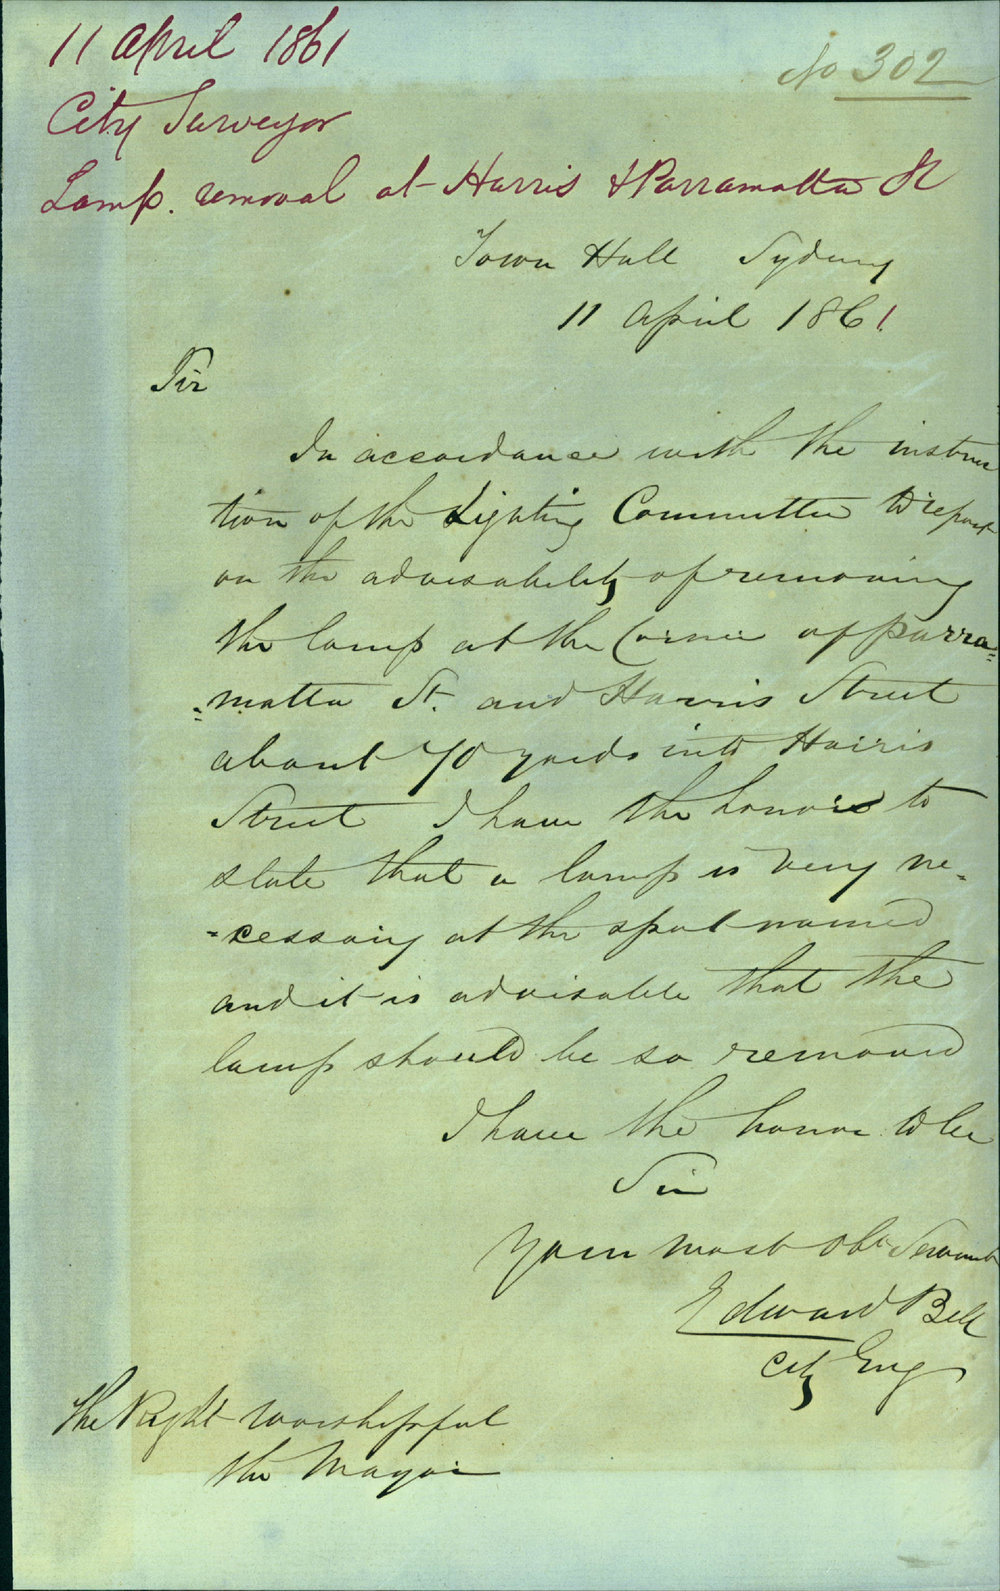 11 April 1861
No 302
City Surveyor
Lamp. removal at Harris & Parramatta St
Town Hall Sydney
11 April 1861.
Sir
In accordance with the instruc
tion of the Lighting Committee to report
on the advisability of removing
the lamp at the Corner of Parra=
=matta St. and Harris Street
about 70 yards into Harris
Street I have the honor to
state that a lamp is very ne=
=cessary at the spot named
and it is advisable that the
lamp should be so removed
I have the honor to be
Sir
Your most obt Servant
Edward Bell
City Eng
The Right Worshipful
the Mayor